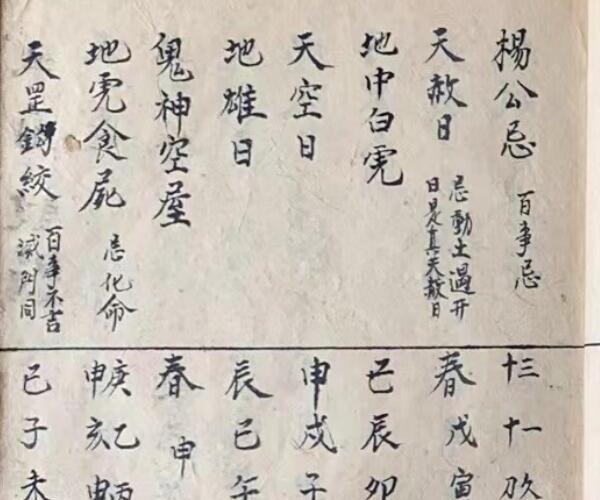 楊公忌 百事忌
天赦日 忌動土遇开
日是真天赦日
地中白虎
天空日
地雄日
鬼神空屋
地虎食屍 忌化命
天罡鈎絞 百事不吉
滅門同
十三 十一
春 戊寅
巳 辰 卯
申 戌 子
辰 巳 午
春 申
庚 乙 丙
申 亥 申
巳 子 未